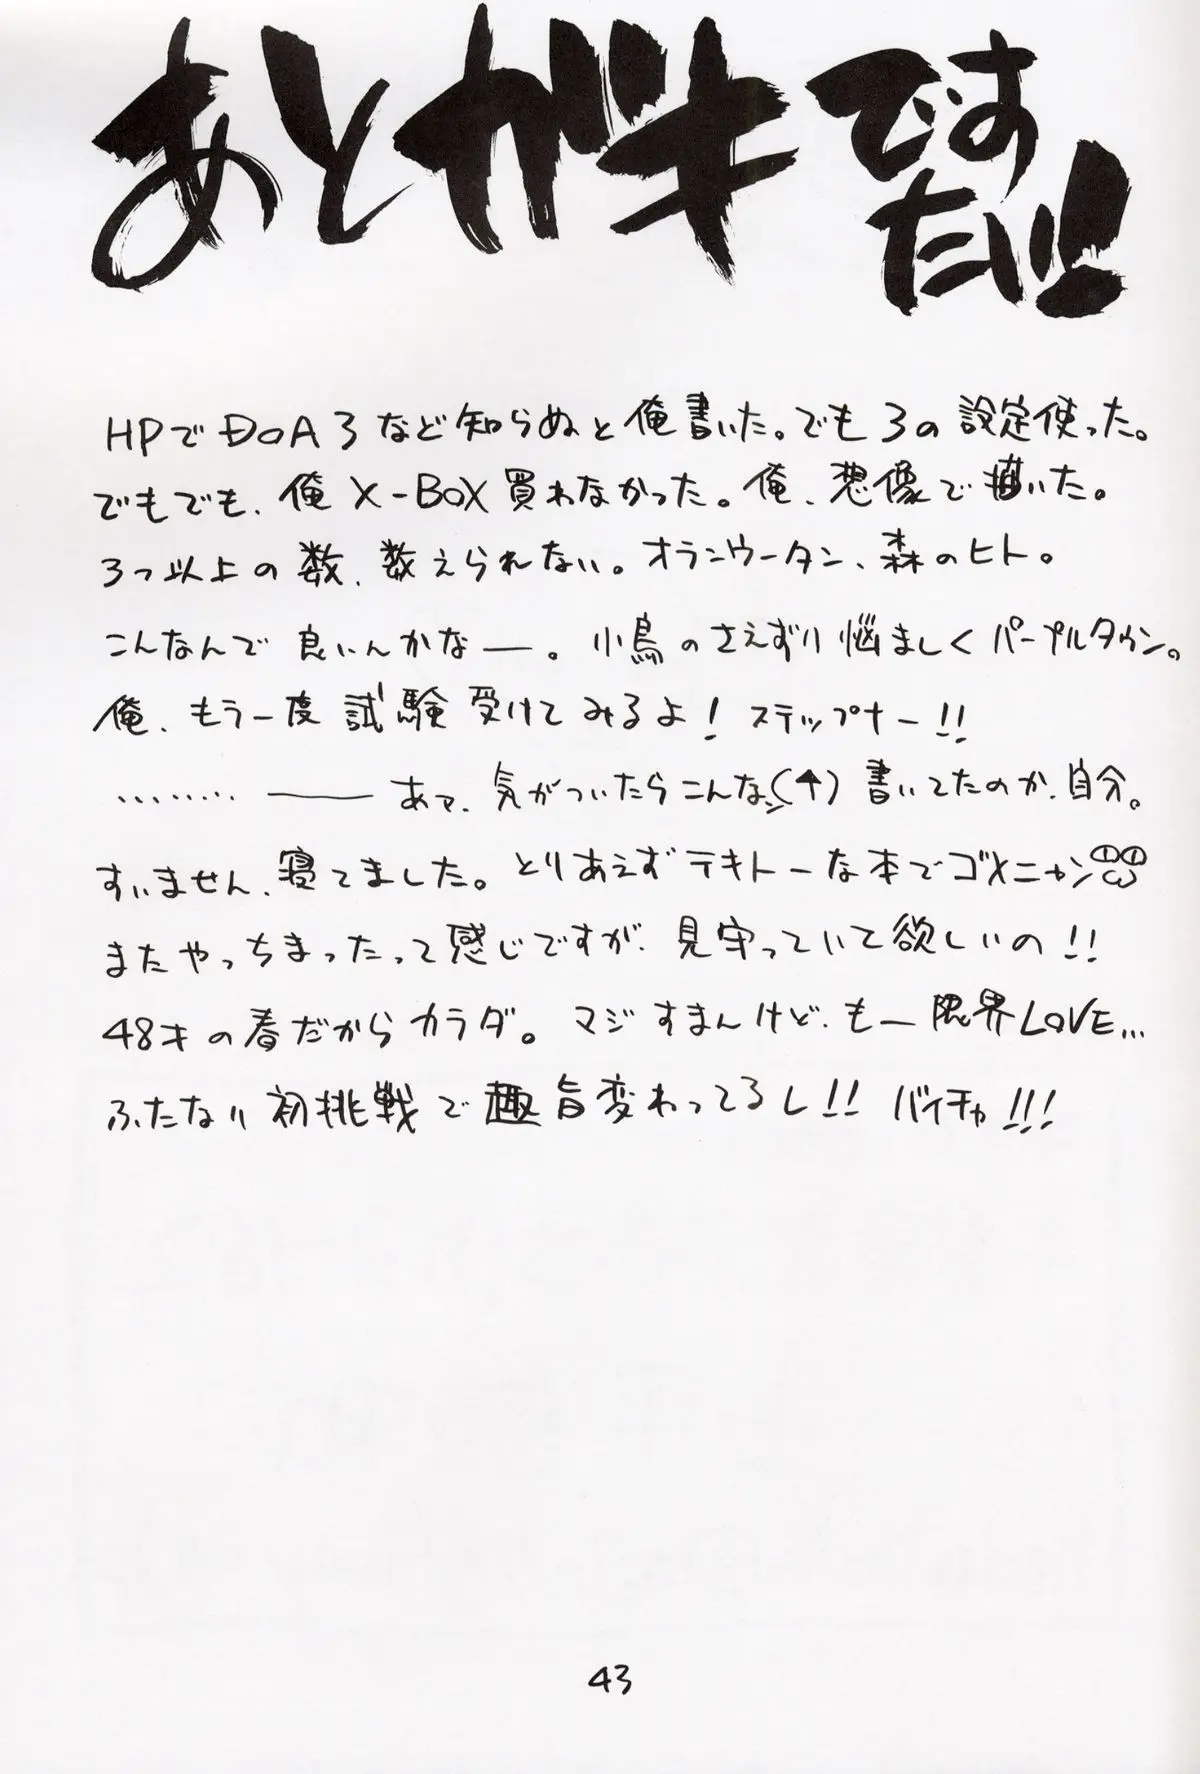 あとガキですたい!!
HPでDOA3など知らぬと俺書いた。でも3の設定使った。
でもでも、俺X-BOX買わなかった。俺、想像で描いた。
3つ以上の数、数えられない。オランウータン、森のヒト。
こんなんで良いんかなー。小鳥のさえずり悩ましくパープルタウン。
俺、もう一度試験受けてみるよ!ステップナー!!
………―― あァ、気がついたらこんな(↑)書いてたのか、自分。
すいません、寝てました。とりあえずテキトーな本でゴメニャン
またやっちまったって感じですが、見守っていて欲しいの!!
48才の春だからカラダ。マジすまんけど、もー限界LOVE…
ふたなり初挑戦で趣旨変わってるし!! バイチャ!!!
43